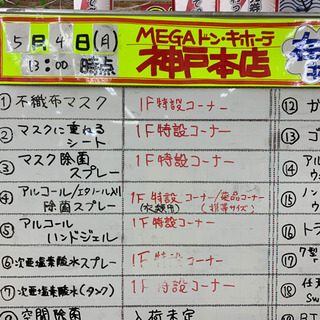 5月4日(月)
13:00 時点
MEGAドン・キホーテ
神戸本店
① 不織布マスク 1F特設コーナー
② マスクに重ねる
シート 1F特設コーナー
③ マスク除菌
スプレー 1F特設コーナー
④ アルコール/エタノール入り
除菌スプレー 1F特設コーナー/薬品コーナー
(携帯サイズ)
⑤ アルコール
ハンドジェル 1F特設コーナー
⑥ 次亜塩素酸水スプレー 1F特設コーナー
⑦ 次亜塩素酸水(タンク) 1F特設コーナー
空間除菌 入荷未定
⑫ ガ
⑬ ゴ
⑭ アル
ウ
⑮ ノン
ウ
⑯ トラ
⑰ 7型
ナ
⑱ 任
Sw